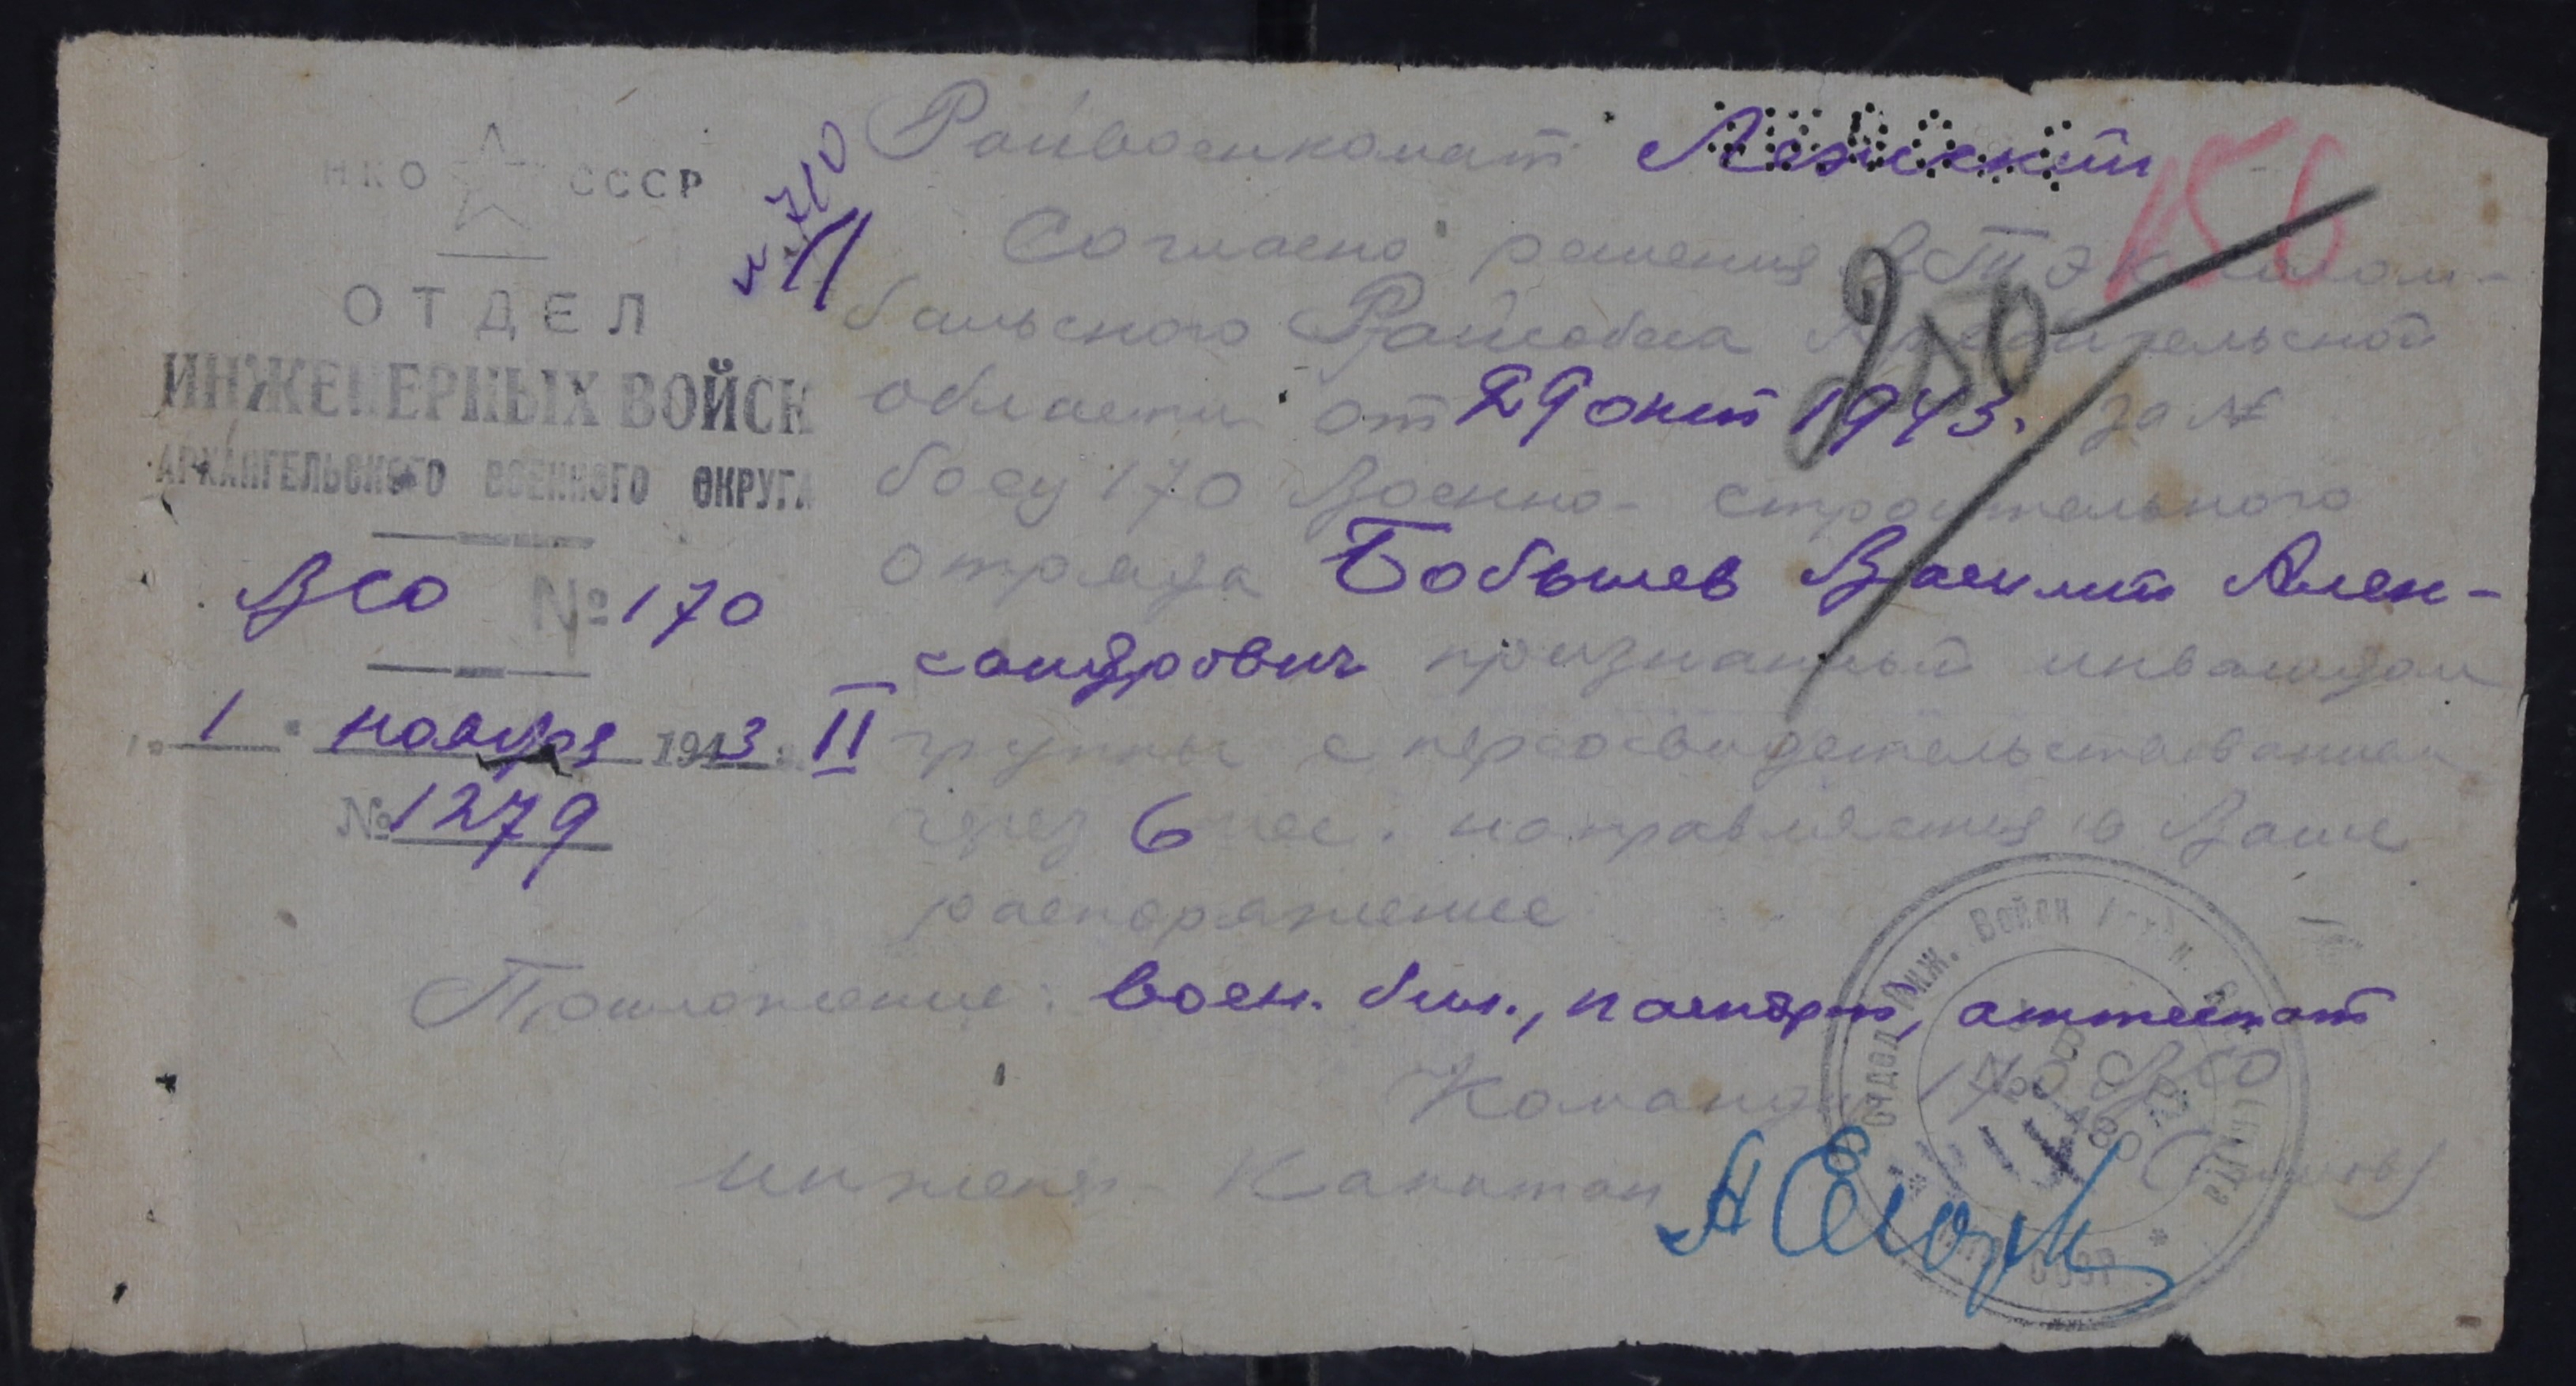 НКО СССР
ОТДЕЛ
ИНЖЕНЕРНЫХ ВОЙСК
АРХАНГЕЛЬСКОГО ВОЕННОГО ОКРУГА
ВСО № 170
1 ноября 1943
№ 1279
Райвоенкомат Ленский
156
710
Согласно решения ВТЭК Солом-
бальского Райсобеса Архангельской
области от 29 окт 1943. за №
боец 170 Военно-строительного
отряда Бобышев Василий Алек-
сандрович признанный инвалидом
II группы с переосвидетельствованием
через 6 мес. направляется в Ваше
распоряжение
Приложение: воен. бил., паспорт, аттестат
Команд. 170 ВСО
инженер-Капитан